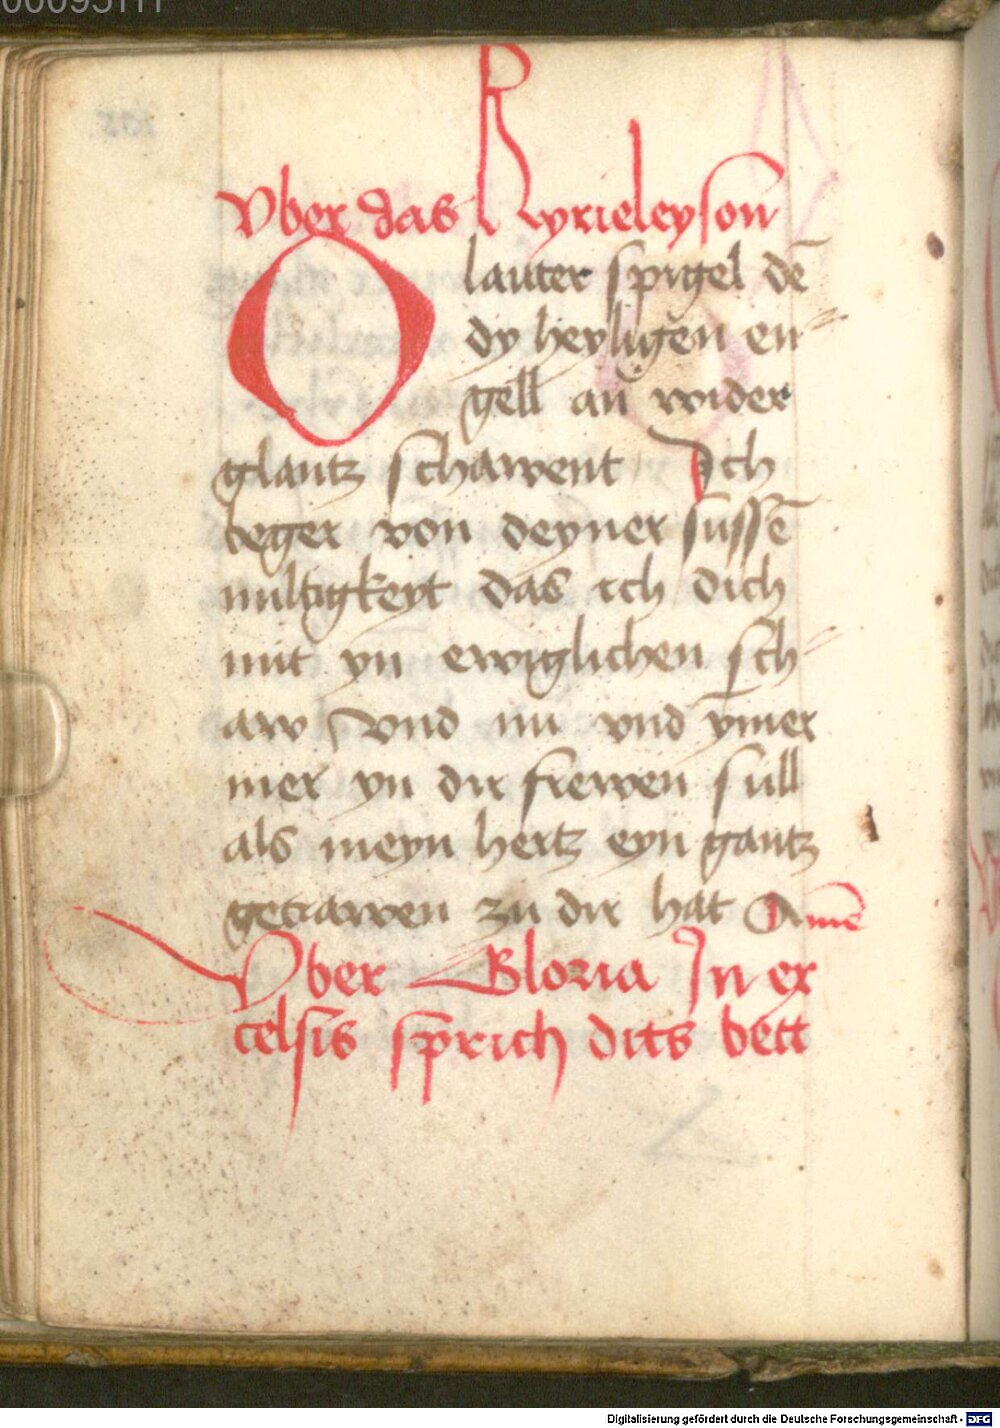 Vber das Kyrieleyson
O lauter spigel dē
dy heyligen en-
gell an wider
glantz schawent Ich
beger von deyner sussē
miltigkeyt das ich dich
mit yn ewiglichen sch-
aw vnd nu vnd ymer
mer yn dir frewen sull
als meyn hertz eyn gantz
getrawen zu dir hat Amē
Vber Gloria In ex
celsis sprich dits bett
Digitalisierung gefördert durch die Deutsche Forschungsgemeinschaft - DFG